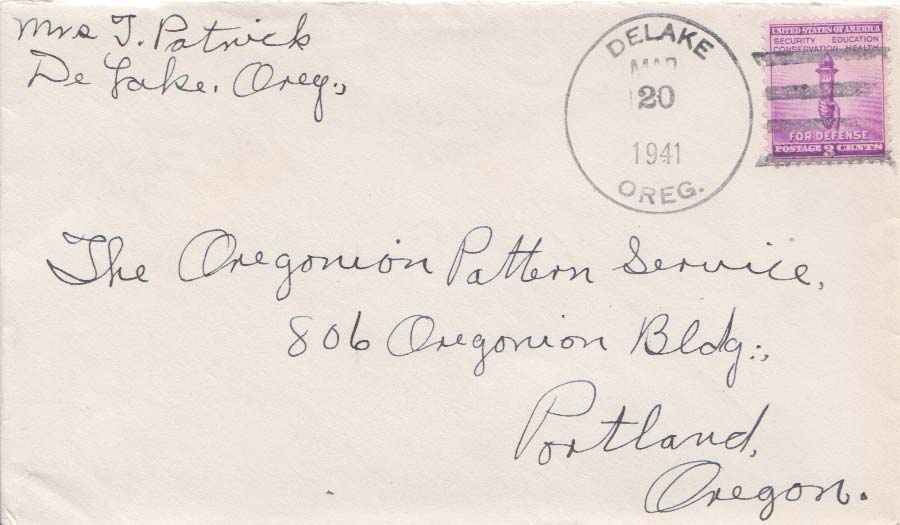 Mrs T. Patrick
De Lake. Oreg.,
DELAKE
MAR
20
1941
OREG.
UNITED STATES OF AMERICA
SECURITY EDUCATION
CONSERVATION HEALTH
FOR DEFENSE
POSTAGE 3 CENTS
The Oregonion Pattern Service,
806 Oregonion Bldg.,
Portland,
Oregon.